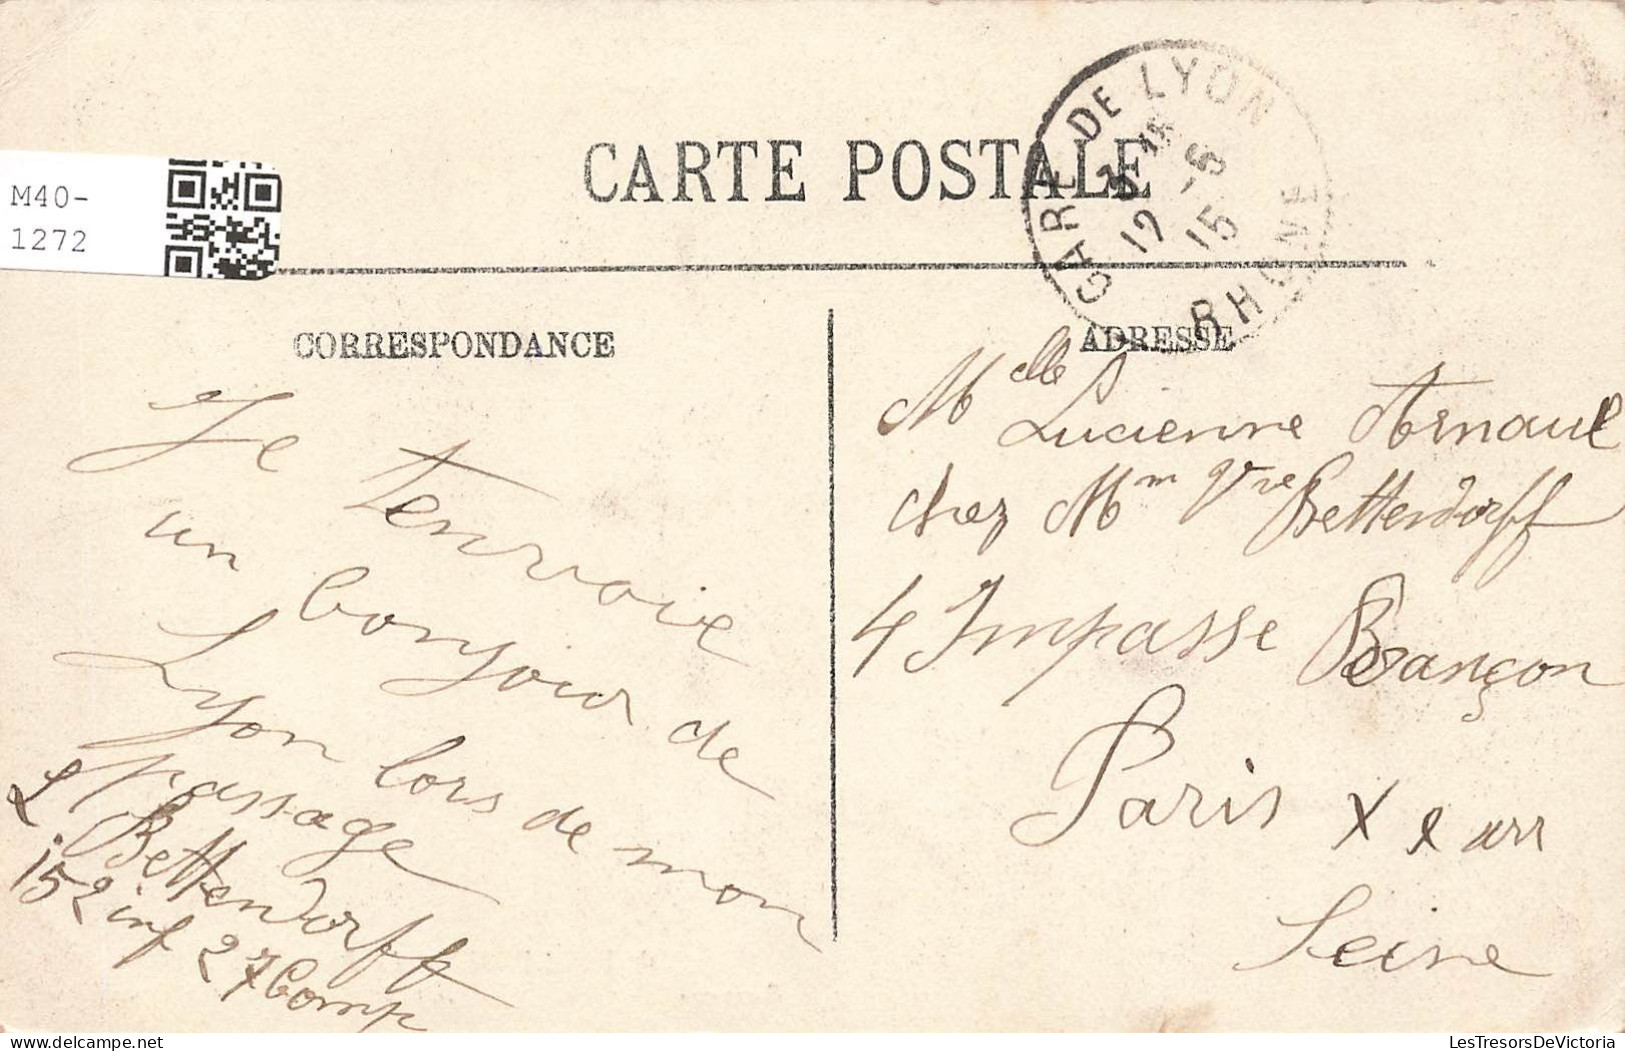 CARTE POSTALE
GARE DE LYON
RHONE
12 -6
15
M40-
1272
CORRESPONDANCE
Je tenvoie
un bonjour de
Lyon lors de mon
passage
L. Bettendorff
152 inf 27 Comp
ADRESSE
Melle Lucienne Arnaul
chez Mm Vve Bettendorff
4 Impasse Besançon
Paris X e arr
Seine
LesTresorsDeVictoria